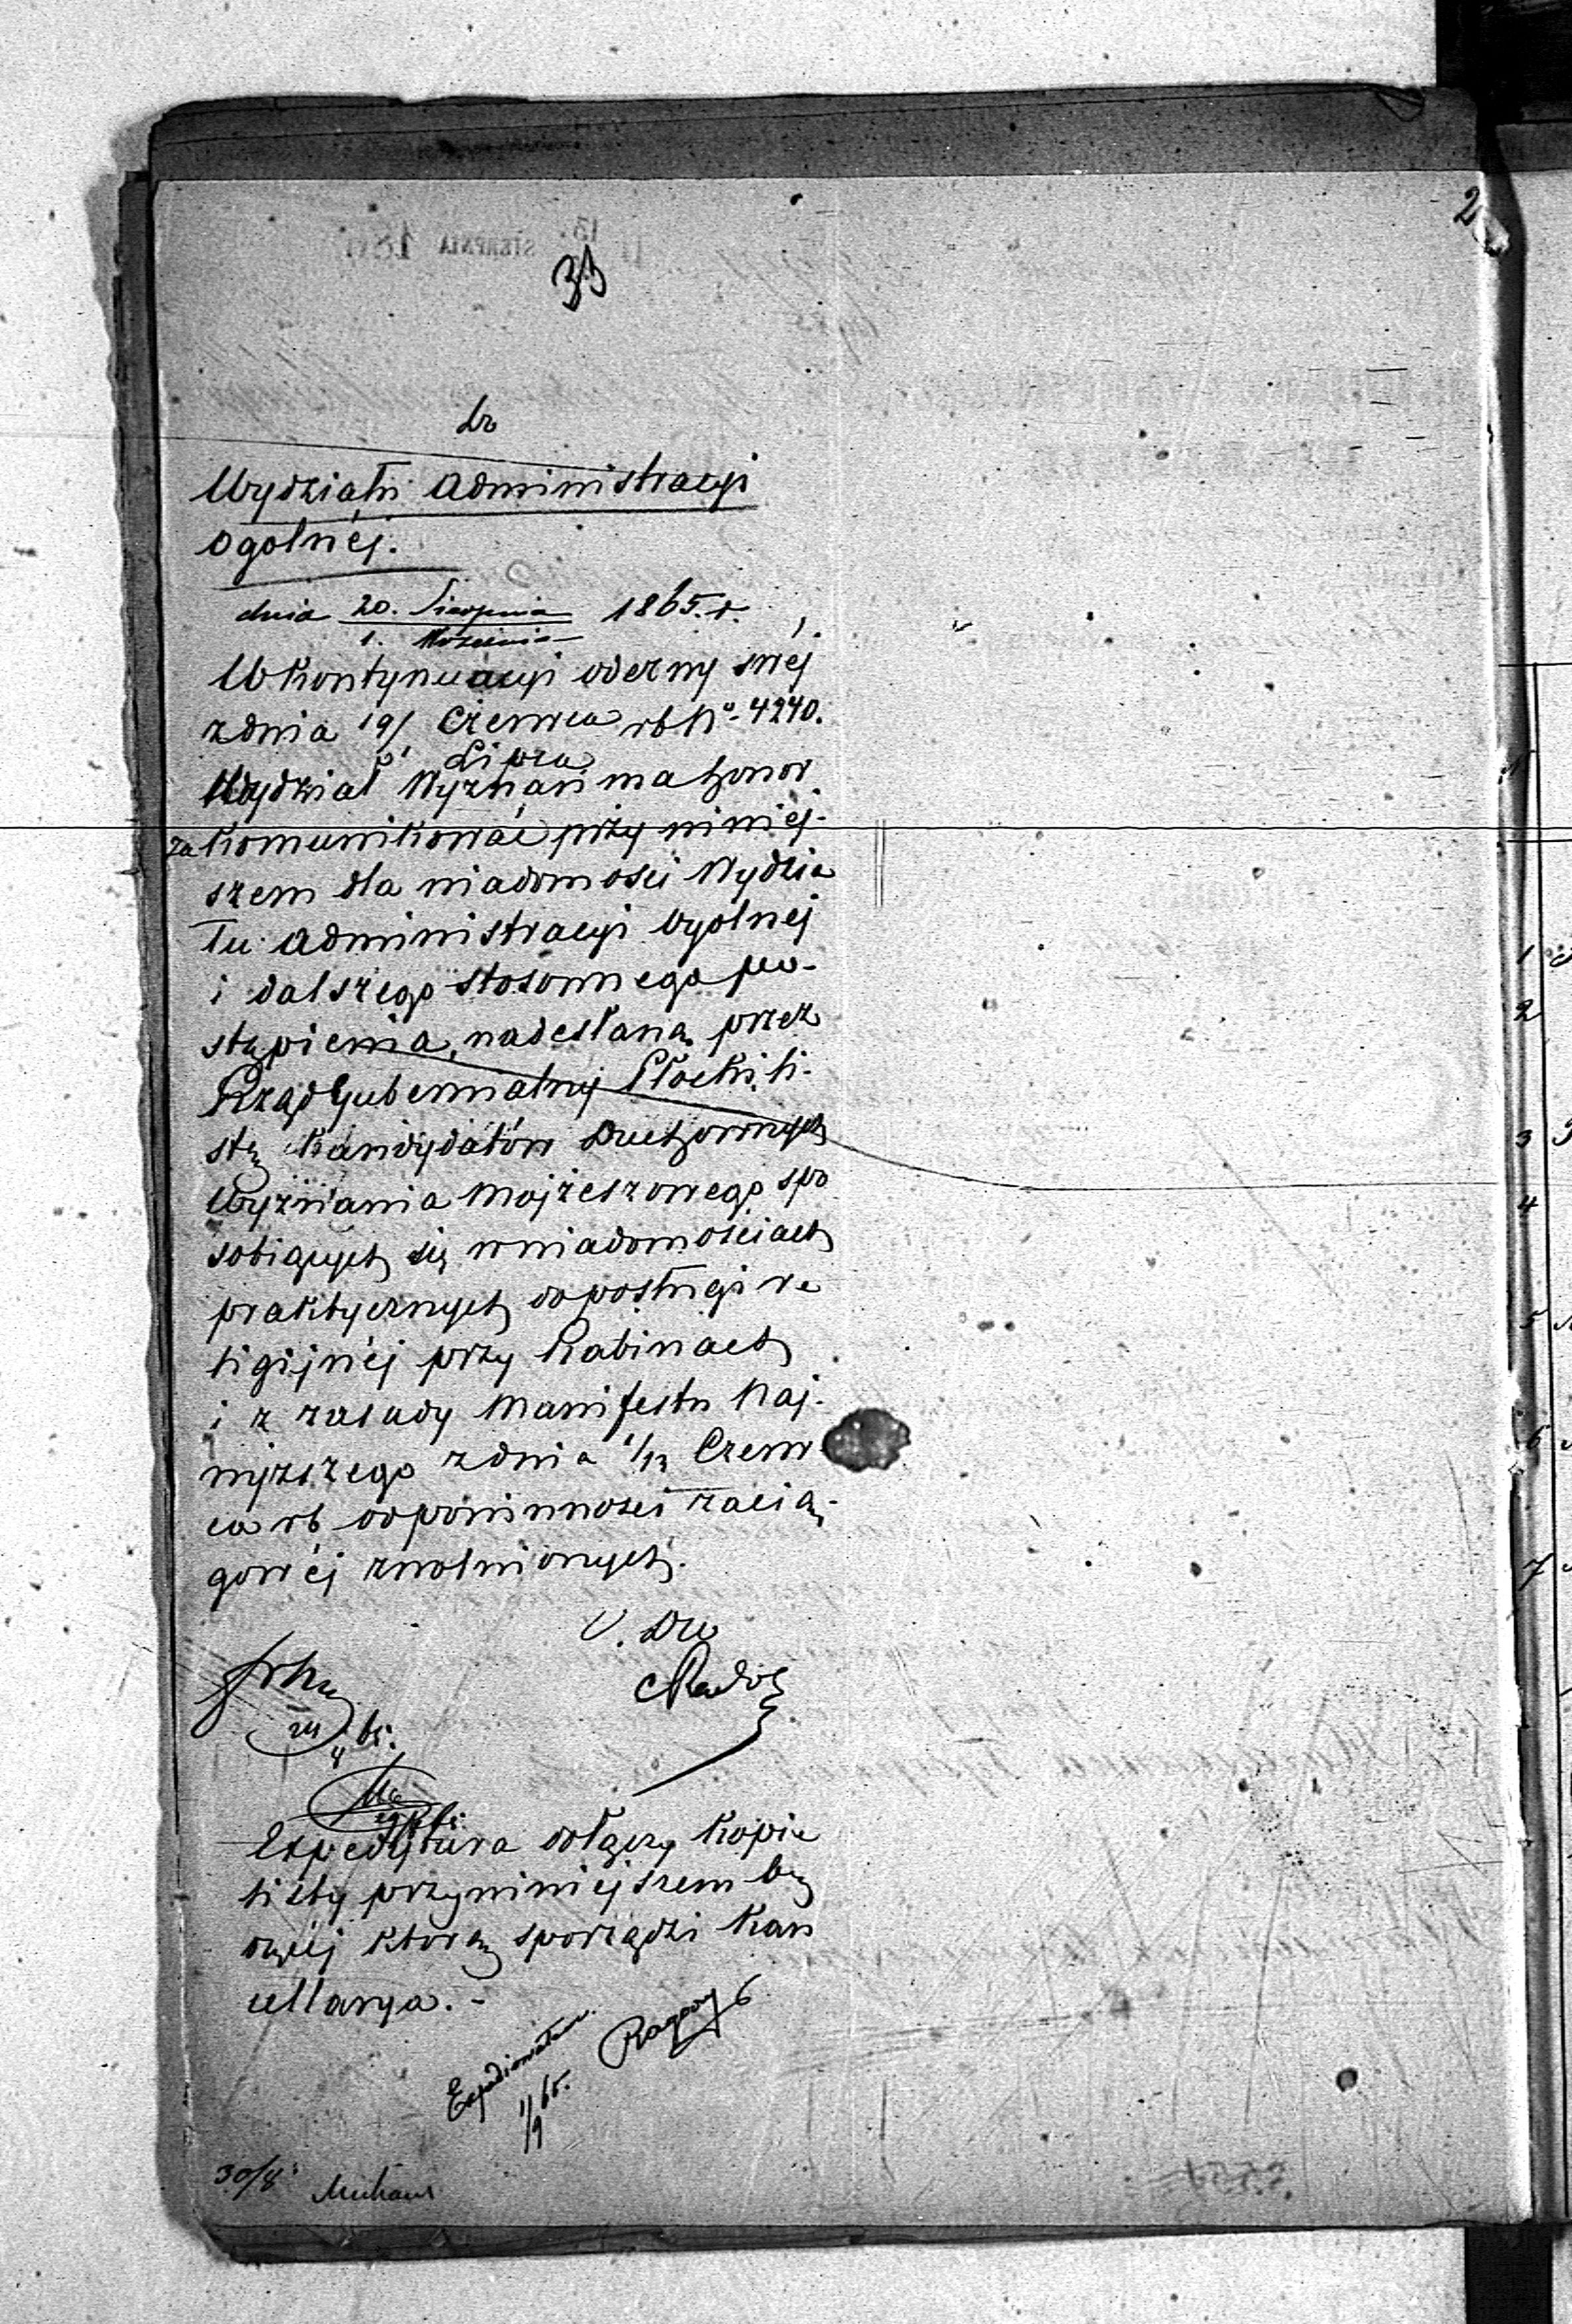 2
33
Do
Wydziału Administracyi
Ogólnéj.
dnia 20. Sierpnia 1865. r.
1. Września
W kontynuacyi odezwy swéj
z dnia 19/ Czerwca rb No. 4240.
Lipca
Wydział Wyznań ma honor
zakomunikować przy niniej-
szem dla wiadomości Wydzia
łu Administracyi Ogólnej
i dalszego stosownego po-
stąpienia, nadesłaną przez
Rząd Gubernialny Płocki li-
stę kandydatów Duchownych
Wyznania Mojżeszowego spo
sobiących się w wiadomościach
praktycznych do posługi re
ligijnéj przy Rabinach
i z zasady Manifestu Naj-
wyższego z dnia 1/13 Czerw
ca rb od powinności zacią-
gowéj zwolnionych.
V. Dre
Expedytura dołączy kopie
listy przy niniejszem bę
dącéj którą sporządzi Kan
cellarya. -
Expediowałem
1/9 65.
30/8